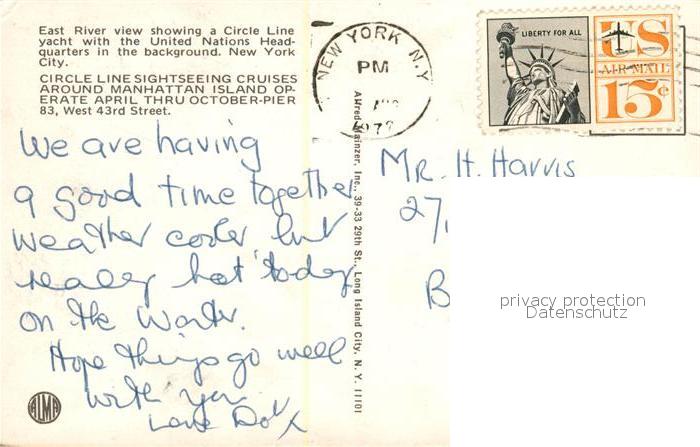 East River view showing a Circle Line
yacht with the United Nations Head-
quarters in the background. New York
City.
CIRCLE LINE SIGHTSEEING CRUISES
AROUND MANHATTAN ISLAND OP-
ERATE APRIL THRU OCTOBER-PIER
83, West 43rd Street.
We are having
a good time together
weather cooler but
really hot today
on the water.
Hope things go well
with you
Love Dot x
ALMA
Alfred Mainzer, Inc., 39-33 29th St., Long Island City, N. Y. 11101
NEW YORK N.Y
PM
LIBERTY FOR ALL
US
AIR MAIL
15¢
Mr. H. Harris
27,
B
privacy protection
Datenschutz